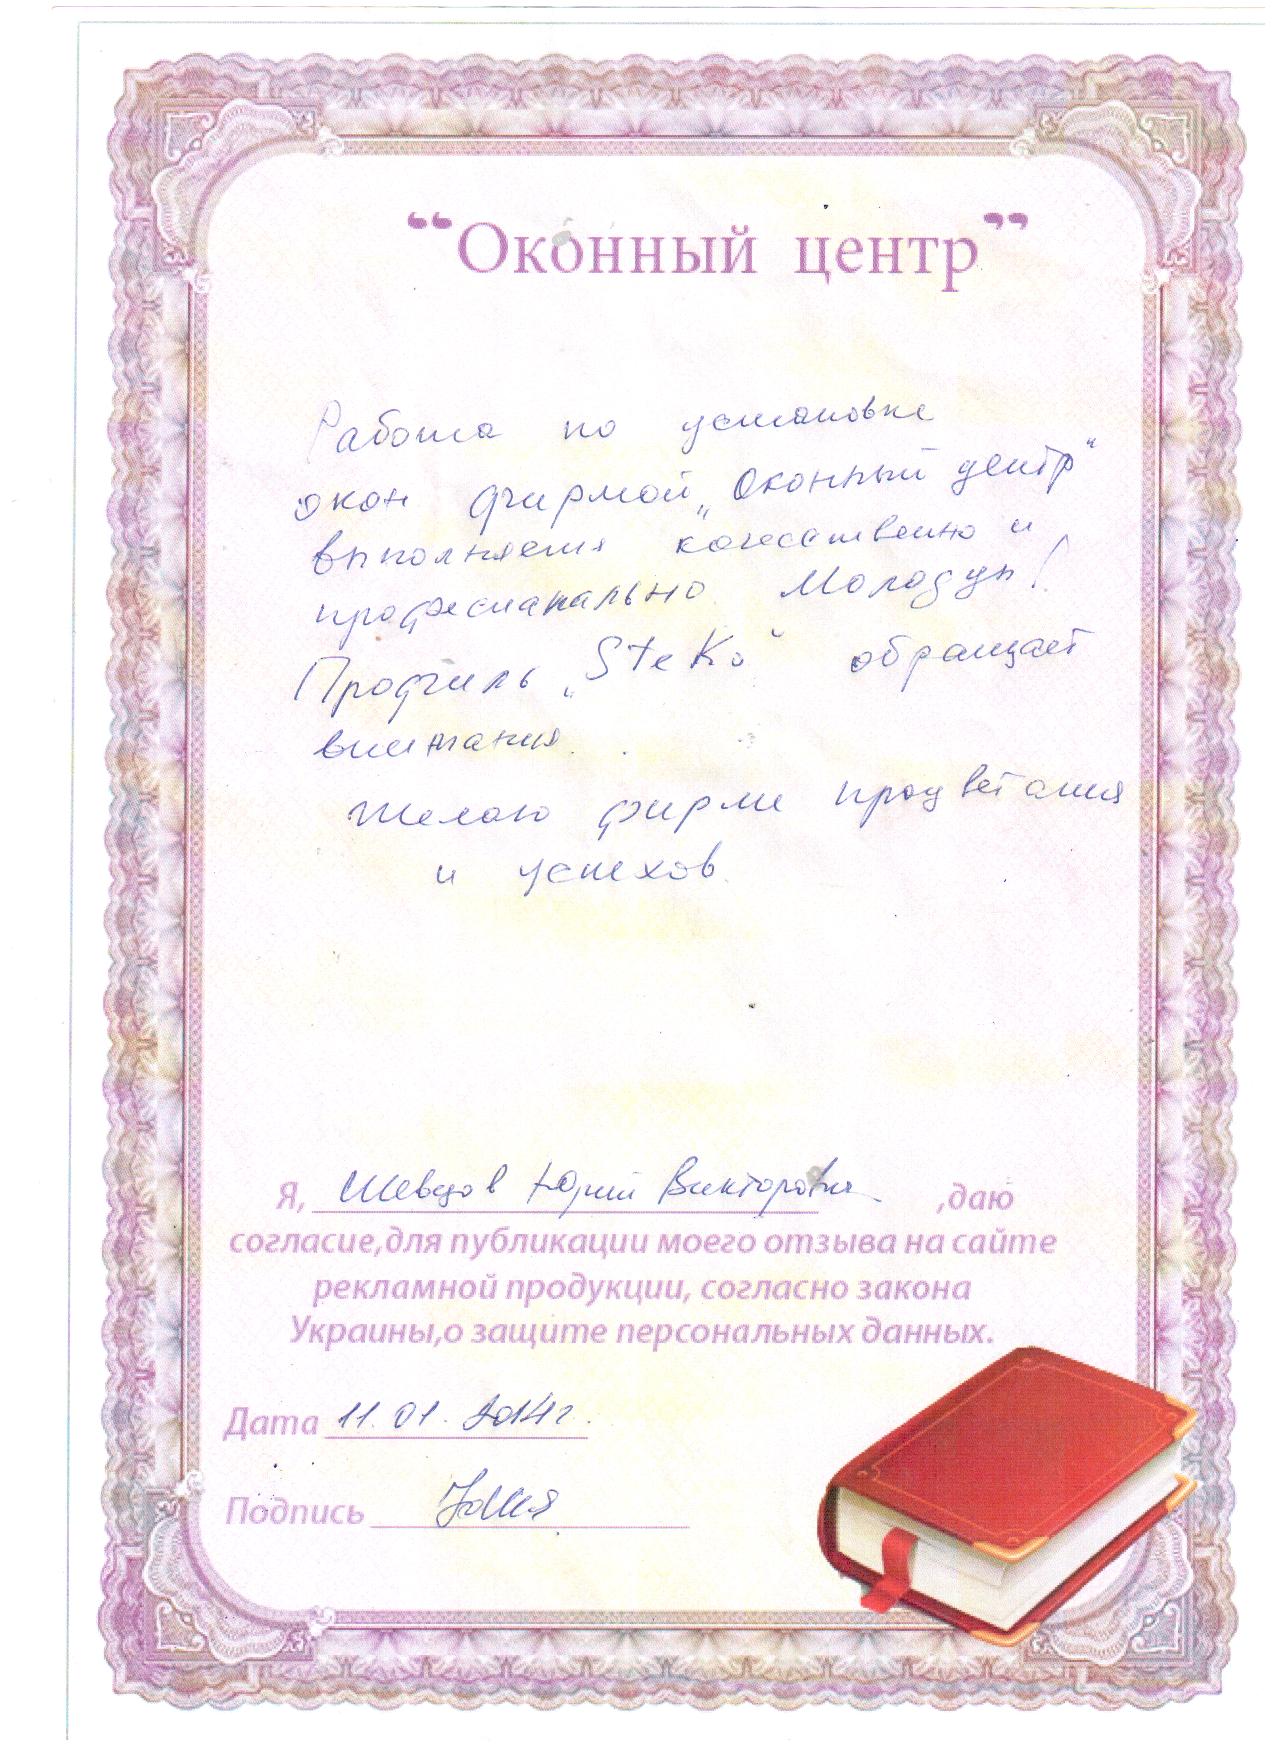 “Оконный центр”
Работа по установке
окон фирмой „Оконный центр“
выполняется качественно и
професианально. Молодцы!
Профиль „Steko“ обращает
внимания.
Желаю фирме процветания
и успехов.
Я, Шевцов Юрий Викторович ,даю
согласие,для публикации моего отзыва на сайте
рекламной продукции, согласно закона
Украины,о защите персональных данных.
Дата 11.01.2014г.
Подпись